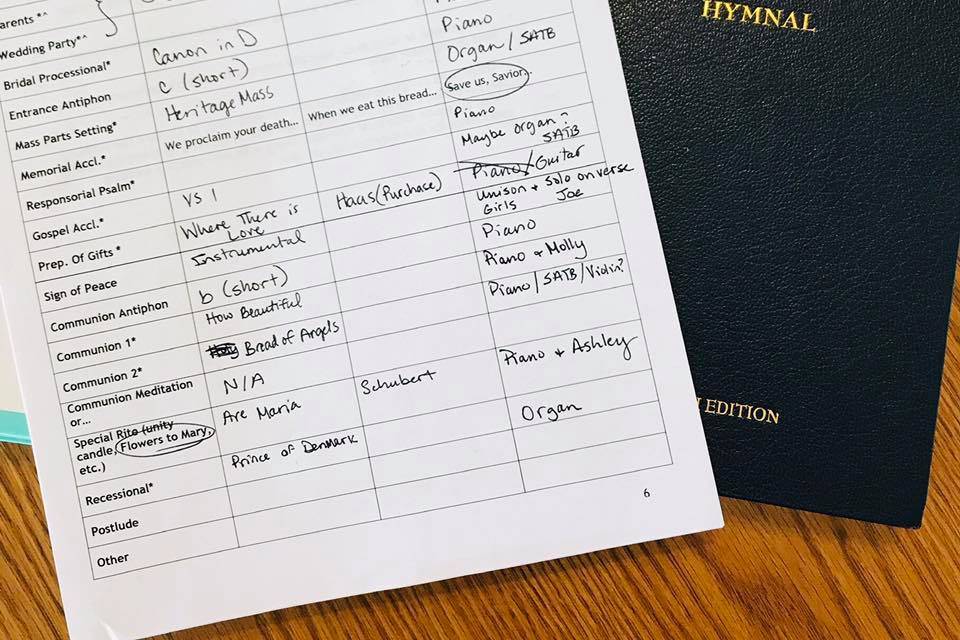 arents *^
Wedding Party*^
Bridal Processional* Canon in D Piano
Entrance Antiphon c (short) Organ / SATB
Mass Parts Setting* Heritage Mass
Memorial Accl.* We proclaim your death... When we eat this bread... Save us, Savior...
Responsorial Psalm* Piano
Gospel Accl.* vs 1 Maybe organ?
SATB
Prep. Of Gifts * Where There is Haas (Purchase) Piano / Guitar
Love Unison + Solo on verse
Girls Joe
Sign of Peace Instrumental Piano
Communion Antiphon b (short) Piano + Molly
Communion 1* How Beautiful Piano / SATB / Violin?
Communion 2* Holy Bread of Angels
Communion Meditation N/A
or...
Special Rite (unity Ave Maria Schubert Piano + Ashley
candle, Flowers to Mary,
etc.)
Recessional* Prince of Denmark Organ
Postlude
Other
6
HYMNAL
EDITION